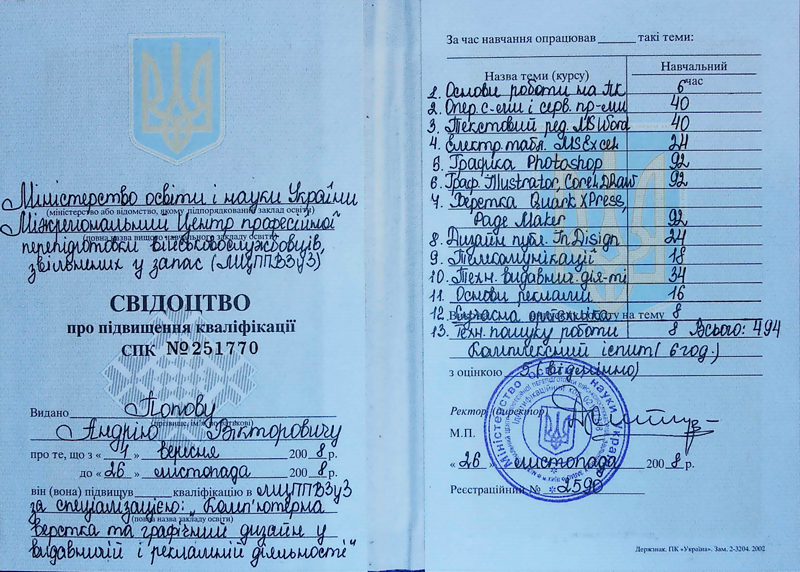 Міністерство освіти і науки України
(міністерство або відомство, якому підпорядкований заклад освіти)
Міжрегіональний Центр професійної
перепідготовки військовослужбовців,
звільнених у запас (МЦППВЗУЗ)
СВІДОЦТВО
про підвищення кваліфікації
СПК №251770
Видано Попову
Андрію Вікторовичу
про те, що з « 1 » вересня 2008 р.
до « 26 » листопада 2008 р.
він (вона) підвищув кваліфікацію в МЦППВЗУЗ
за спеціалізацією: „Комп'ютерна
(повна назва закладу освіти)
верстка та графічний дизайн у
видавничій і рекламній діяльності"
За час навчання опрацював ______ такі теми:
Назва теми (курсу)
Навчальний
час
1. Основи роботи на ПК 6
2. Опер. с-ми і серв. пр-ми 40
3. Текстовий ред. MS Word 40
4. Електр. табл. MS Excel 24
5. Графіка Photoshop 92
6. Граф. Illustrator, Corel Draw 92
7. Верстка Quark XPress,
Page Maker 92
8. Дизайн публ. In Disign 24
9. Телекомунікації 18
10. Техн. видавнич. дія-ті 34
11. Основи реклами 16
12. Сучасна оргтехніка 8
13. Техн. пошуку роботи 8 Всього: 494
Комплексний іспит (6 год.)
з оцінкою 5 (відмінно)
Ректор (директор)
М.П.
« 26 » листопада 2008 р.
Реєстраційний № 2590
Держзнак. ПК «Україна». Зам. 2-3204. 2002